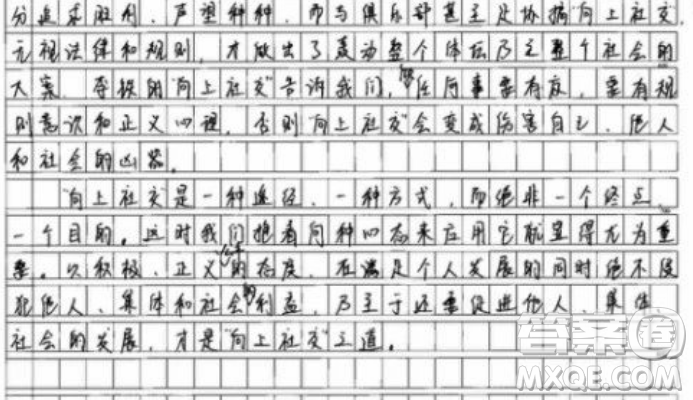 分追求胜利、声望种种，而与俱乐部甚至足协搞"向上社交"，
无视法律和规则，才做出了轰动整个体坛乃至整个社会的
大案。李铁的"向上社交"告诉我们，做任何事要有度，要有规
则意识和正义心理，否则"向上社交"会变成伤害自己、他人
和社会的凶器。
"向上社交"是一种途径、一种方式，而绝非一个终点、
一个目的。这时我们抱着何种心态来应用它就显得尤为重
要。以积极、正义、的态度，在满足个人发展的同时绝不侵
犯他人、集体和社会的利益，乃至于还要促进他人、集体、
社会的发展，才是"向上社交"之道。
答案圈
MXQE.COM